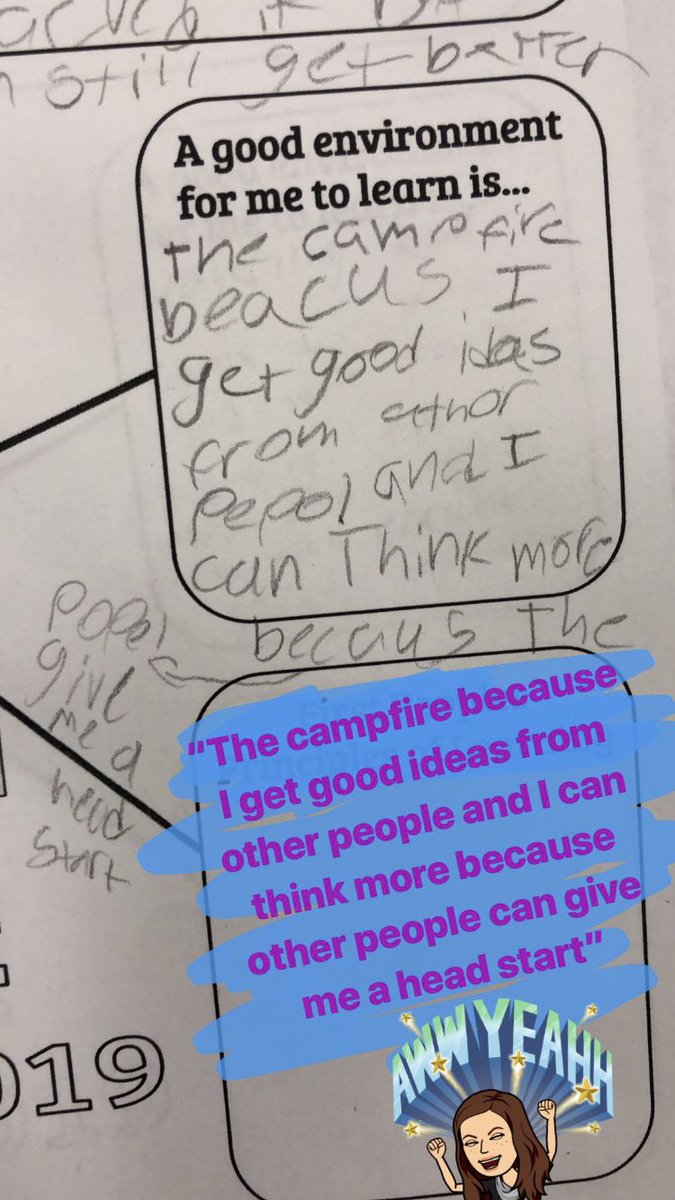 still get better
A good environment
for me to learn is...
the campfire
beacus I
get good idas
from
pepol and I
can Think more
becaus The
popel
give
me a
head
start
“The campfire because
I get good ideas from
other people and I can
think more because
other people can give
me a head start”
019
AWW YEAHH